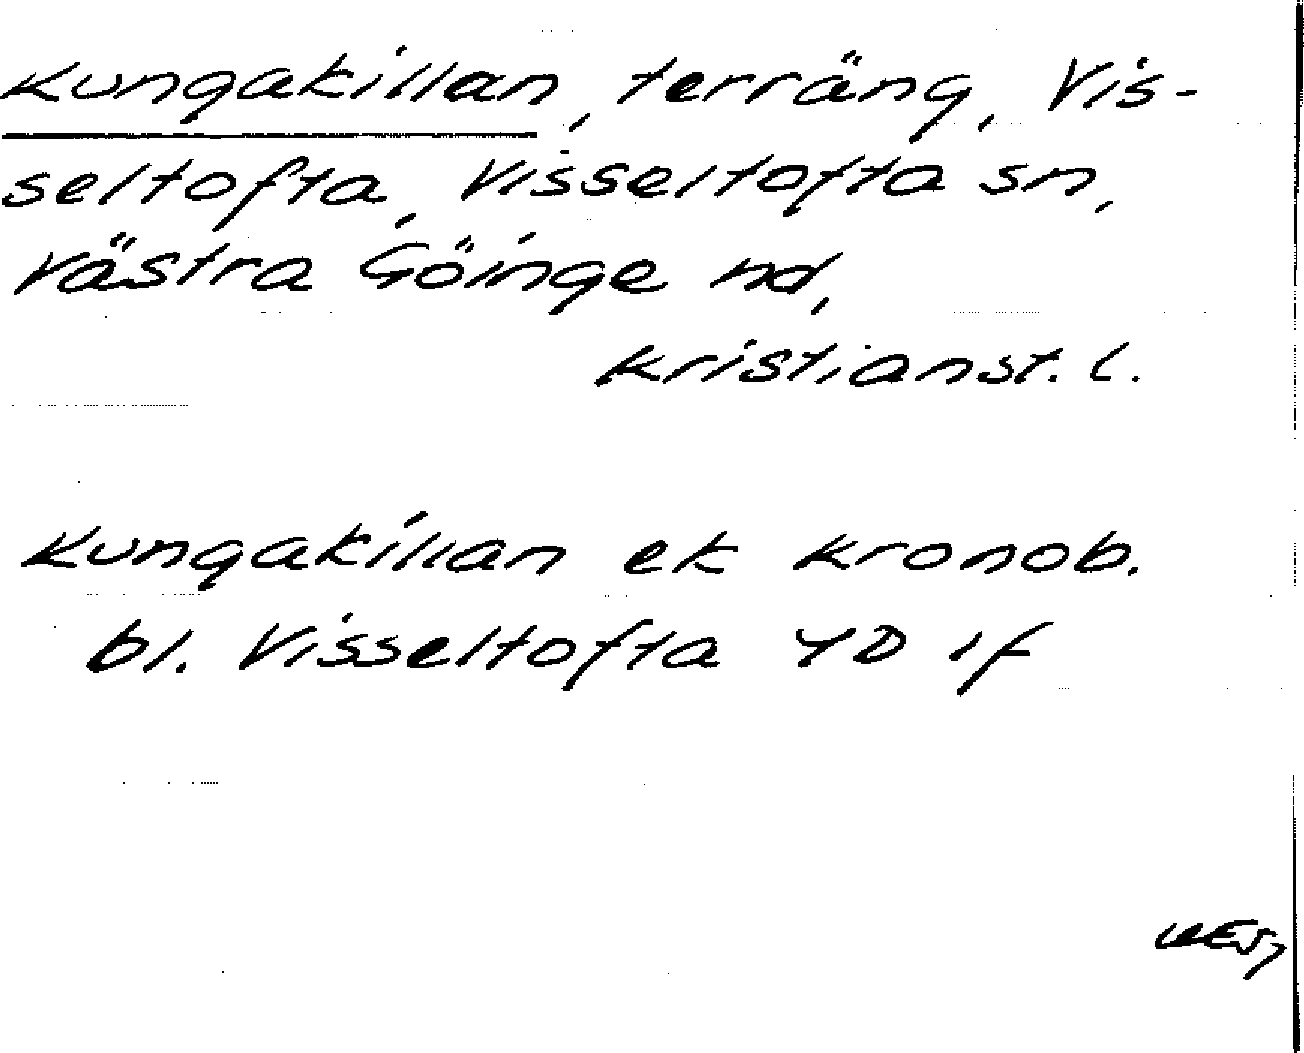 Kungakillan, terräng, Vis-
seltofta, Visseltofta sn,
Västra Göinge hd,
Kristianst. l.
Kungakillan ek Kronob.
bl. Visseltofta 4D 1f